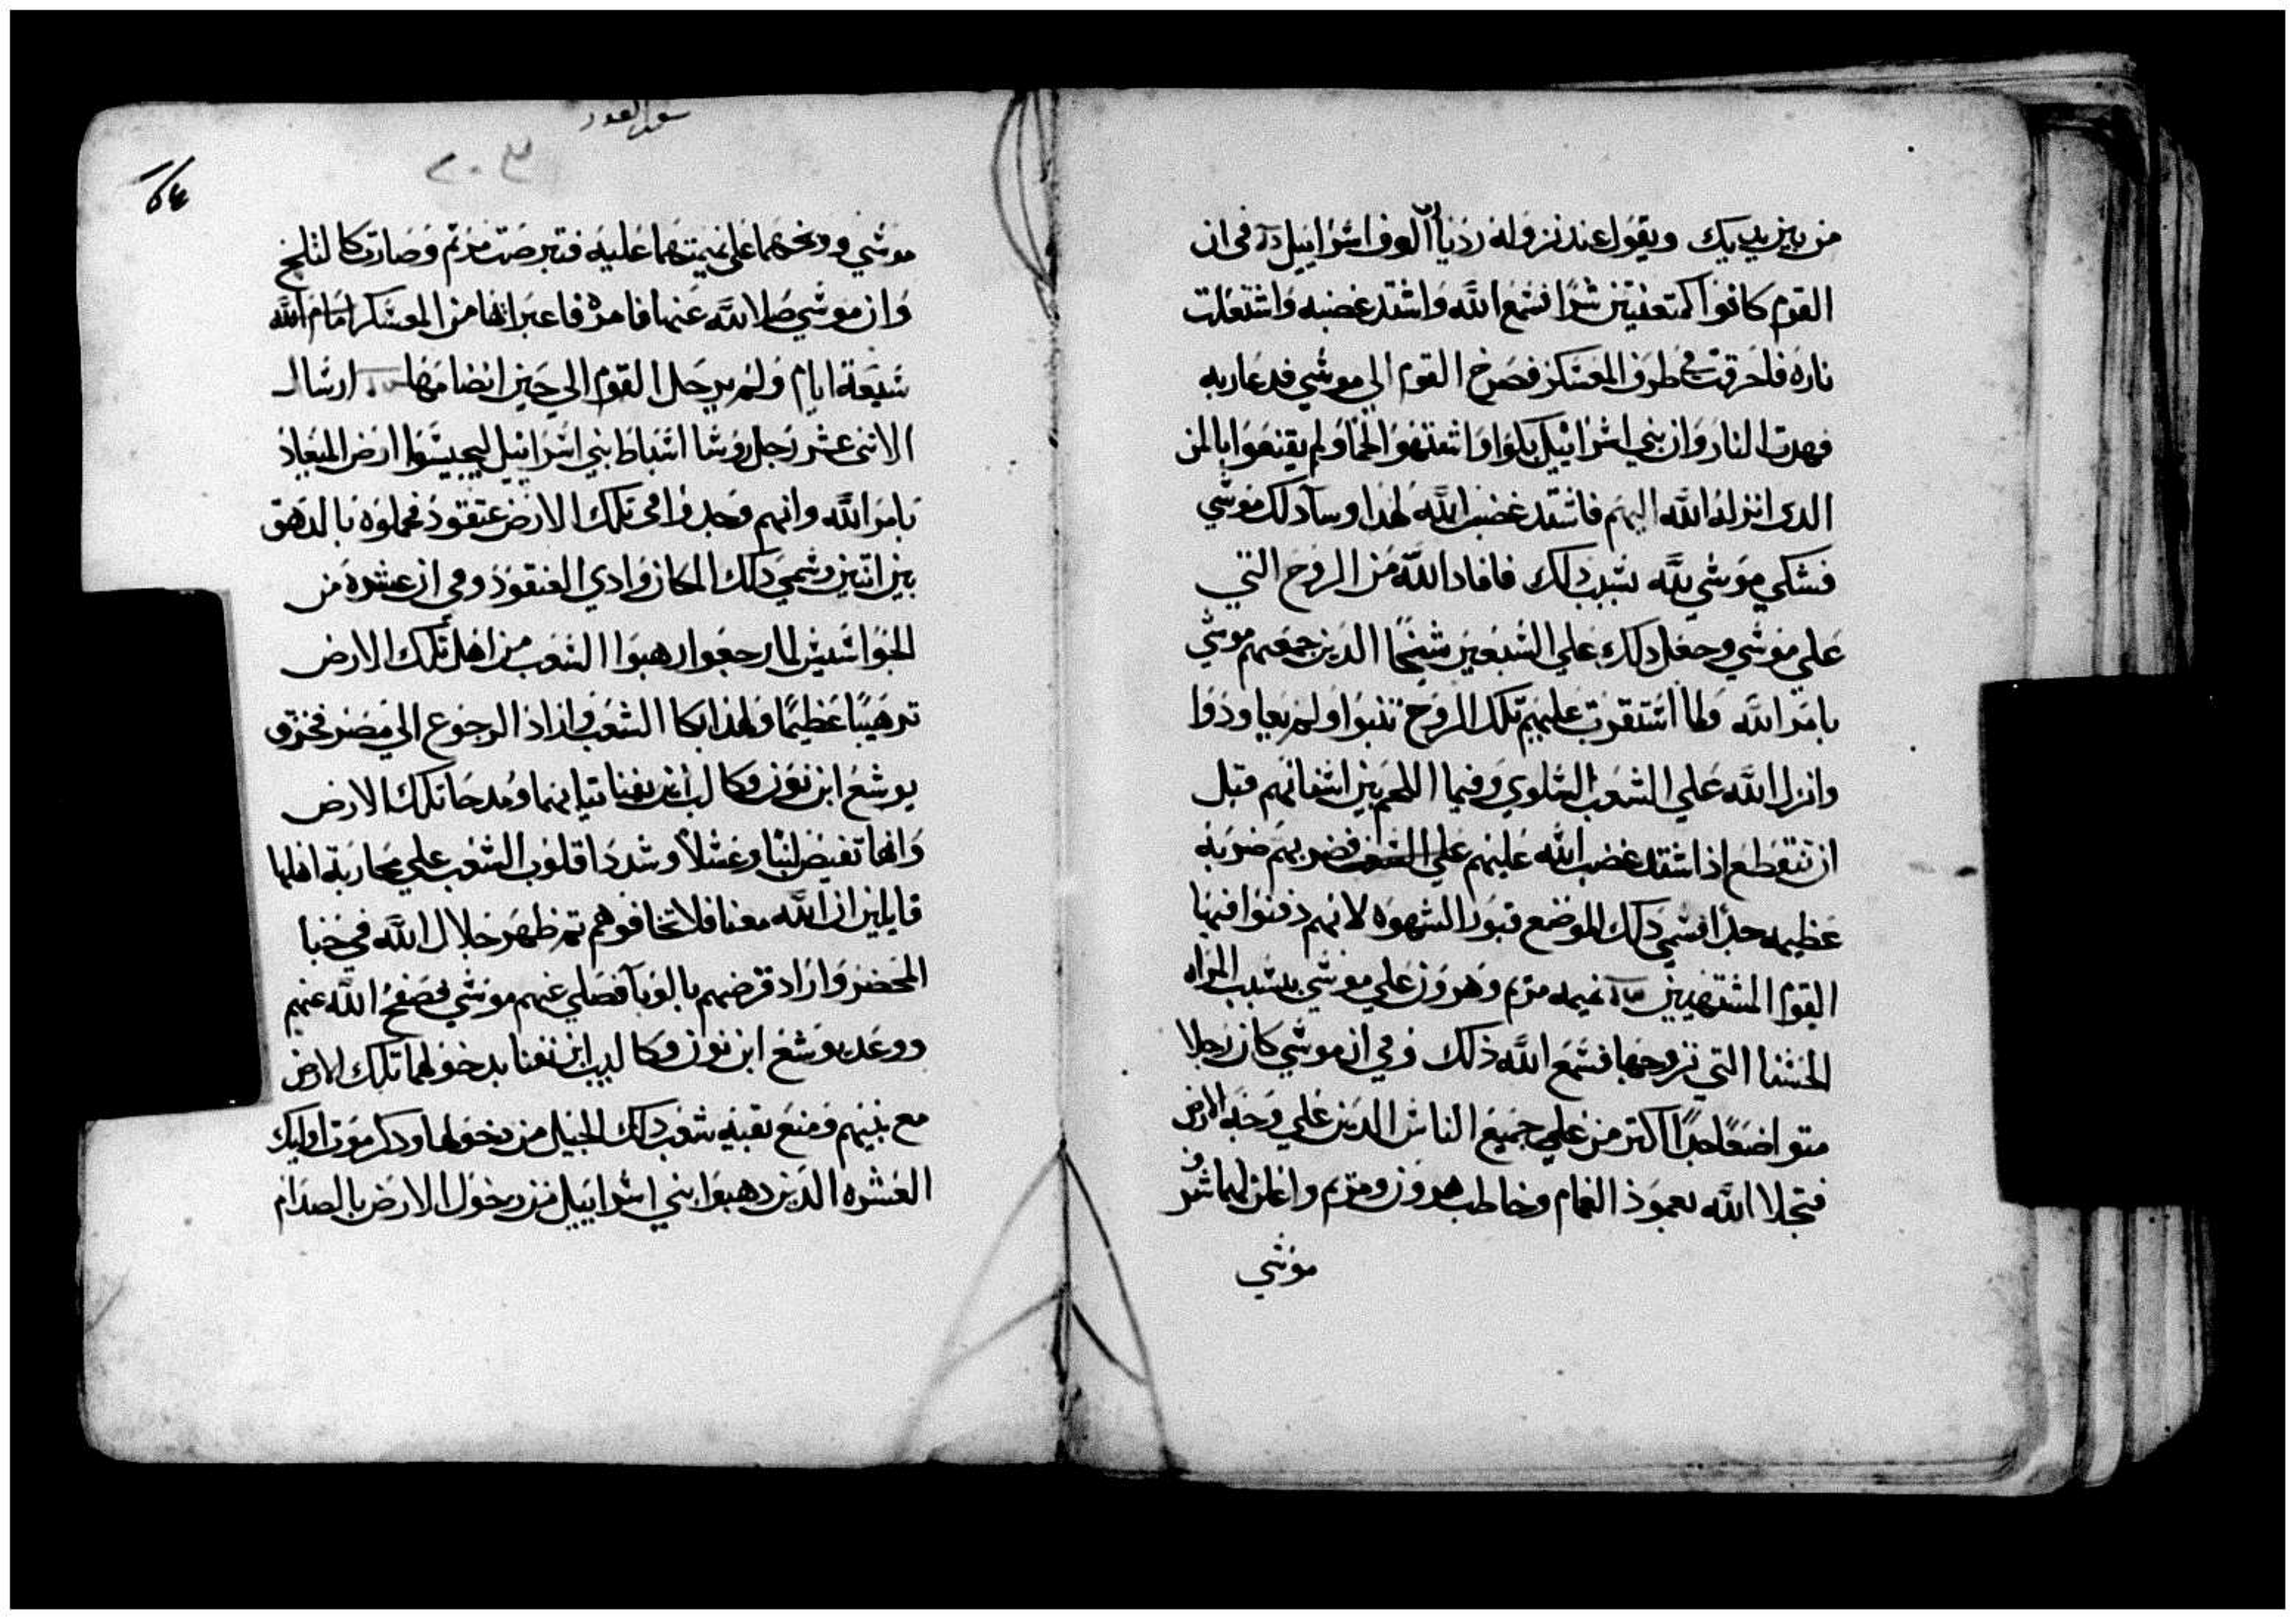 من بين يديك ويقول عند نزوله رد يا الوف اسرائيل في ان
القوم كانوا كمتعنتين شرا فسمع الله واشتد غضبه واشتعلت
ناره فاحرقت في طرف المعسكر فصرخ القوم الي موسي فدعا ربه
فهدت النار وان بني اسرائيل بكوا واشتهوا لحما ولم يقنعوا بالمن
الدى انزله الله اليهم فاشتد غضب الله لهدا وسآ دلك موسي
فشكي موسي لله بسبب دلك فافاد الله من الروح التي
علي موسي وجعل دلك علي السبعين شيخا الدين جمعهم موسي
بامر الله ولما استقرت عليهم تلك الروح تنبوا ولم يعاودوا
وانزل الله علي الشعب السلوي وفيما اللحم بين اسنانهم قبل
ان تنقطع اذ اشتد غضب الله عليهم علي الشعب فضربهم ضربه
عظيمه جدا فسمي دلك الموضع قبور الشهوه لانهم دفنوا فيها
القوم المشتهيين نميمه مريم وهرون علي موسي بسبب المراه
الحسنا التي تزوجها فسمع الله ذلك وفي ان موسي كان رجلا
متواضعا جدا اكتر من علي جميع الناس الدين علي وجه الارض
فتجلا الله بعمود الغمام وخاطب هرون ومريم واعلن لهما شرف
موسي
سفر العدد
٢٠٣
موسي ووبخهما علي نميمتهما عليه فتبرصت مريم وصارت كالثلج
وان موسي صلا لله عنها فامره فاعبر انها من المعسكر امام الله
سبعة ايام ولم يرحل القوم الي حين انضامها ارسال
الاثنى عشر رجل روسا اسباط بني اسرائيل ليجسوا ارض الميعاد
بامر الله وانهم وجدوا في تلك الارض عنقود فحملوه بالدهق
بين اتنين وسمي دلك المكان وادي العنقود وفي ان عشره من
الجواسيس لما رجعوا رهبوا الشعب من اهل تلك الارض
ترهيبا عظيما ولهذا بكا الشعب واراد الرجوع الي مصر فخزق
يوشع ابن نون وكالب ابن يفنا تيابهما ومدحا تلك الارض
وانها تفيض لبنا وعسلا وشددا قلوب الشعب علي محاربة اهلها
قايلين ان الله معنا فلا تخافوهم تم ظهر جلال الله في خبا
المحضر واراد قرضهم بالوبا فصلي عنهم موسي فصفح الله عنهم
ووعد يوشع ابن نون وكالب ابن يفنا بدخولهما تلك الارض
مع بنيهم ومنع بقية شعب دلك الجيل من دخولها ودكر موت اوليك
العشره الدين رهبوا بني اسرائيل من دخول الارض بالصدام